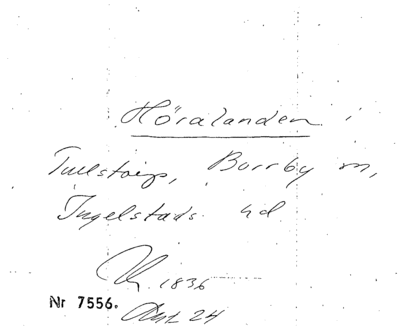 Höralanden i
Tullstorps, Borrby m,
Ingelstads hd
1836
Nr 7556.
24